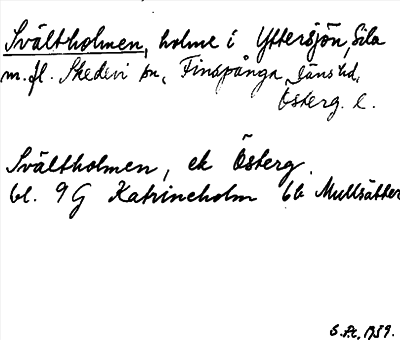 Svältholmen, holme i Yttersjön, Sila
m.fl. Skedevi sn, Finspånga länshd,
Österg. l.
Svältholmen, ek Österg.
bl. 9 G Katrineholm 6b Mullsätter
1959.